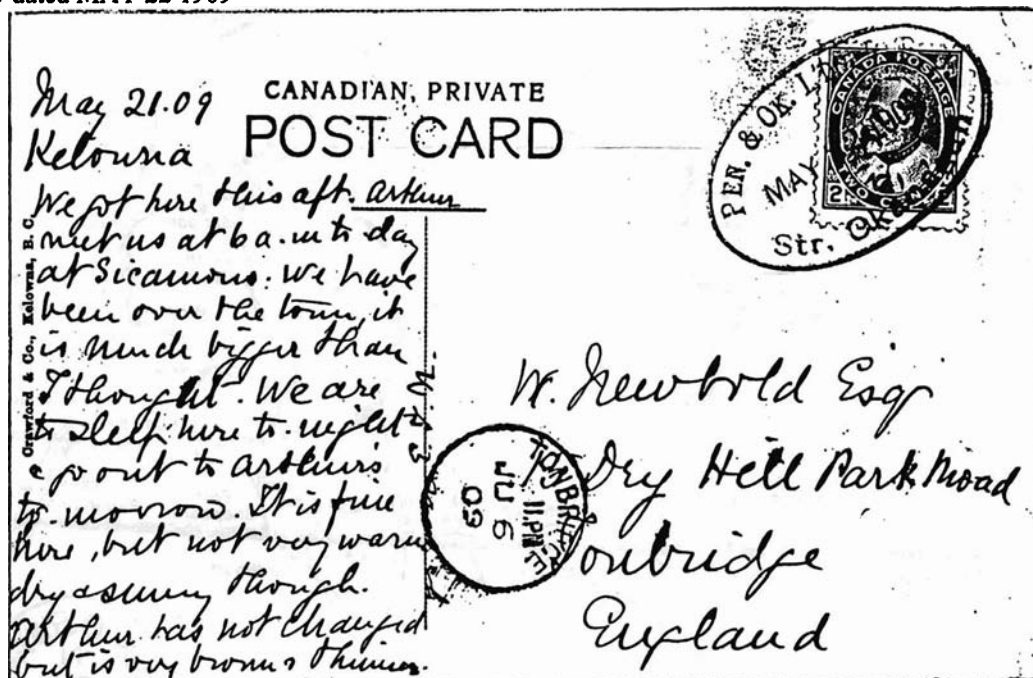 dated MAY 22 1909
May 21.09
Kelowna
CANADIAN PRIVATE
POST CARD
We got here this aft. Arthur
met us at 6 a.m to day
at Sicamous. We have
been over the town, it
is much bigger than
I thought. We are
to sleep here to-night
& go out to Arthur's
to-morrow. It is fine
here, but not very warm
dry & sunny though.
Arthur has not changed
but is very brown & thinner.
Crawford & Co., Kelowna, B. C.
PEN. & OK. L
MAY
Str. Okanagan
CANADA POSTAGE
TWO CENTS
2
W. Newbold Esq
Dry Hill Park Road
Tonbridge
England
TONBRIDGE
11.PM
JU 6
09